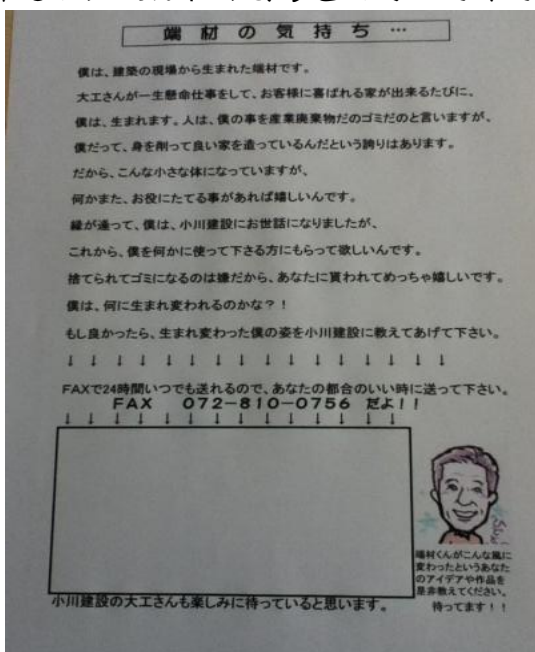 端材の気持ち…
僕は、建築の現場から生まれた端材です。
大工さんが一生懸命仕事をして、お客様に喜ばれる家が出来るたびに。
僕は、生まれます。人は、僕の事を産業廃棄物だのゴミだのと言いますが、
僕だって、身を削って良い家を造っているんだという誇りはあります。
だから、こんな小さな体になっていますが、
何かまた、お役にたてる事があれば嬉しいんです。
縁が逢って、僕は、小川建設にお世話になりましたが、
これから、僕を何かに使って下さる方にもらって欲しいんです。
捨てられてゴミになるのは嫌だから、あなたに貰われてめっちゃ嬉しいです。
僕は、何に生まれ変われるのかな？！
もし良かったら、生まれ変わった僕の姿を小川建設に教えてあげて下さい。
↓ ↓ ↓ ↓ ↓ ↓ ↓ ↓ ↓ ↓ ↓ ↓ ↓ ↓ ↓ ↓
FAXで24時間いつでも送れるので、あなたの都合のいい時に送って下さい。
FAX 072-810-0756 だよ！！
↓ ↓ ↓ ↓ ↓ ↓ ↓ ↓ ↓ ↓ ↓ ↓ ↓
端材くんがこんな風に
変わったというあなた
のアイデアや作品を
是非教えてください。
待ってます！！
小川建設の大工さんも楽しみに待っていると思います。